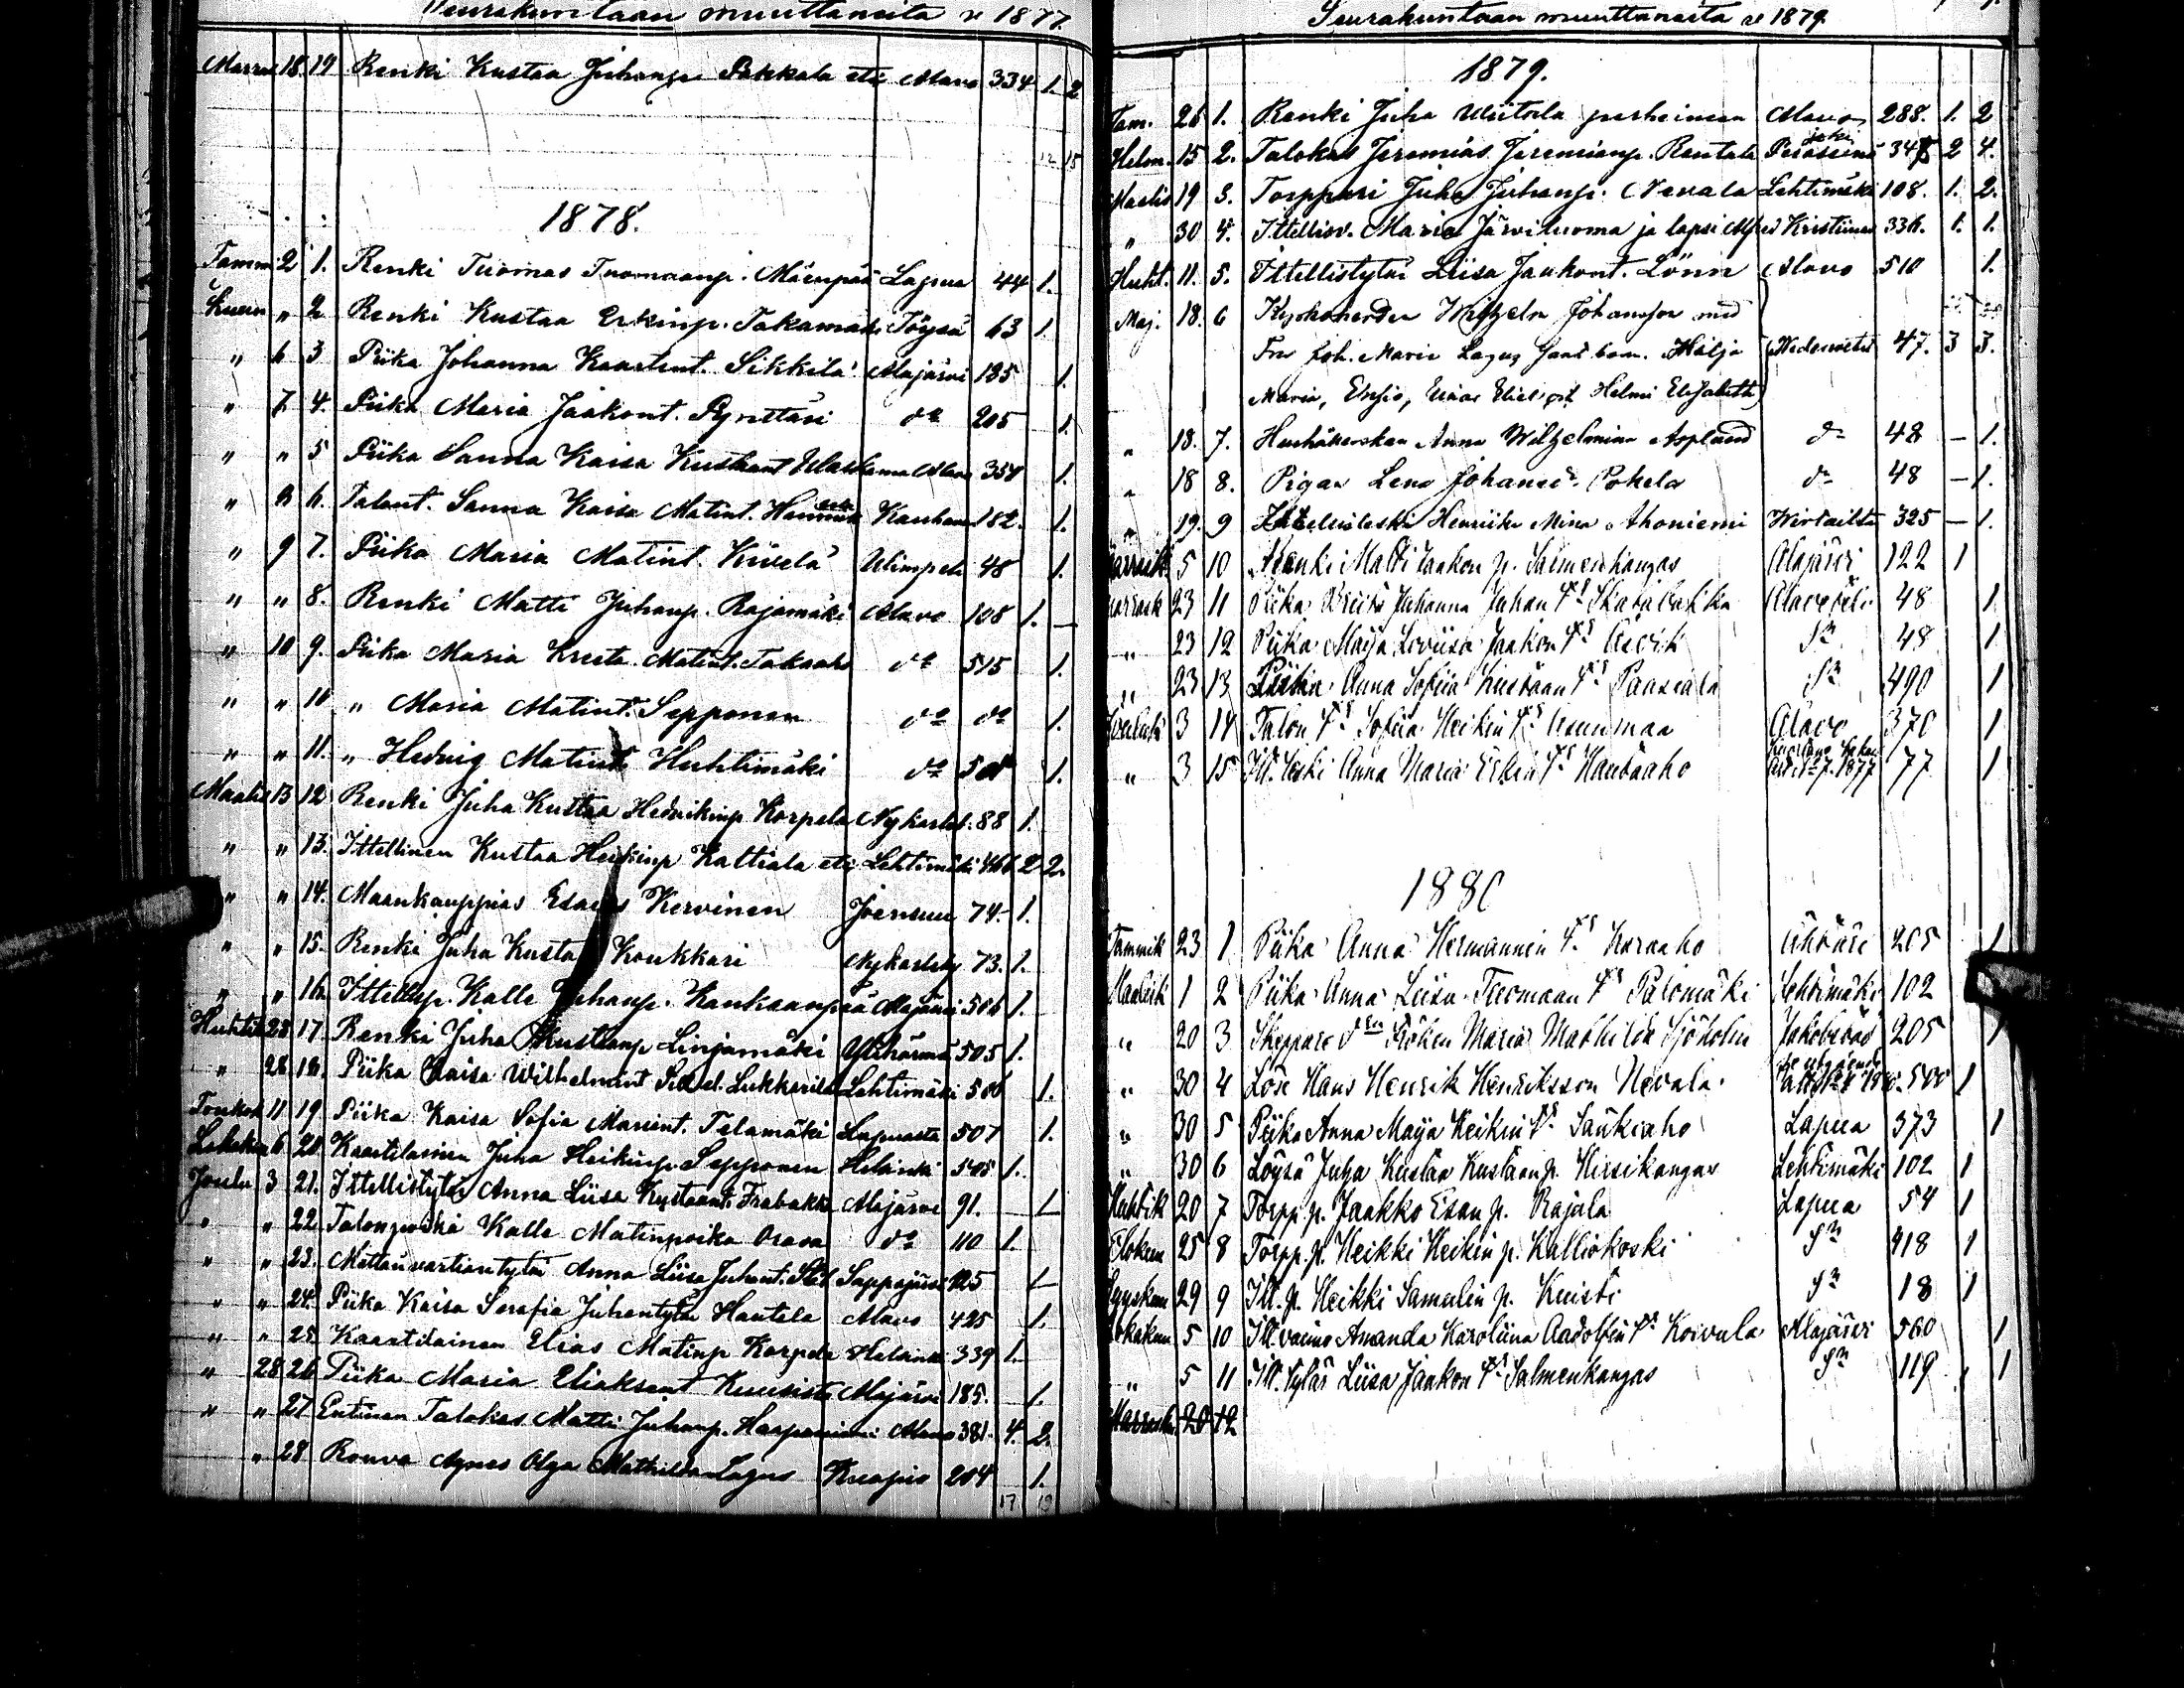 Seurakuntaan muuttaneita v 1877.
Marras 18. 19 Renki Kustaa Juhanp. Pakkala etc Alavo 334 1. 2
12 15
1878.
Tamm 2 1. Renki Tuomas Tuomaanp. Mäenpää Lapua 44 1.
" 2 Renki Kustaa Erkinp. Takamaa Töysä 63 1.
" 6 3 Piika Johanna Kaarlent. Sikkilä Alajärvi 185 1.
" 7 4. Piika Maria Jaakont. Pynttäri do 205 1.
" " 5 Piika Sanna Kaisa Kustaant Alavo 354 1.
" 8 6. Talont. Sanna Kaisa Matint. Kauhava 182. 1.
" 9 7. Piika Maria Matint. Kivelä Wimpeli 48 1.
" " 8. Renki Matti Juhanp. Rajamäki Alavo 108 1. —
" 10 9. Piika Maria Kreeta Matint. Takaaho do 515 1.
" " 10 " Maria Matint. Sepponen do do 1.
" " 11. " Hedvig Matint. Huhtimäki do 508 1.
Maalis 13 12 Renki Juha Kustaa Hedvikinp Korpela Nykarleb. 88 1.
" " 13. Ittellinen Kustaa Heikinp Kattiala etc Lehtimäki 466 2 2.
" " 14. Maankauppias Esaias Kervinen Joensuu 74. 1.
" " 15. Renki Juha Kusta Koukkari Nykarleby 73. 1.
" " 16. Ittellisp. Kalle Juhanp. Kankaanpää Alajärvi 506 1.
Huhtik 28 17. Renki Juha Kustaanp Linjamäki Ylihärmä 505 1.
" 28 18. Piika Kaisa Wilhelmint Lukkarila Lehtimäki 506 1.
Toukok 11 19 Piika Kaisa Sofia Mariant. Telamäki Lapuasta 507 1.
Lokakuu 6 20. Kaartilainen Juha Heikinp Sepponen Helsinki 505 1.
Joulu 3 21. Ittellistytär Anna Liisa Kustaant. Alajärvi 91. 1
" " 22 Talonpoika Kalle Matinpoika Orava do 110 1.
" " 23. Anna Liisa Juhant. Lappajärvi 125 1
" " 24. Piika Kaisa Serafia Juhantytär Hautala Alavo 425 1.
" " 25. Kaartilainen Elias Matinp Korpela Helsinki 339 1.
" 28 26 Piika Maria Eliaksent Kuusisto Alajärvi 185. 1.
" " 27 Entinen Talokas Matti Juhanp. Haapaniemi Alavo 381. 4. 2.
" 28 Rouva Agnes Olga Mathilda Lagus Kuopio 204 1.
17 18
Seurakuntaan muuttaneita v 1879.
1879.
Tam. 26 1. Renki Juha Wiitala perheineen Alavo 288. 1. 2
Helm. 15 2. Talokas Jeremias Jeremianp. Rantala Peräseinäjoki 345 2 4.
Maalis 19 3. Torppari Juha Juhanp. Nevala Lehtimäki 108. 1. 2.
" 30 4. Ittellisv. Maria Järviluoma ja lapsi Alfred Kristiinan 336. 1. 1.
Huht. 11. 5. Ittellistytär Liisa Jaakont. Lönn Alavo 510 1.
Maj. 18. 6 Kyrkoherden Wilhelm Johansson med
Fru Joh. Maria Lagus samt barn. Hilja Nedervetil 47. 3 3.
Maria, Elsie, Einar Eliel och Helmi Elisabeth
" 18. 7. Hushållerskan Anna Wilhelmina Asplund do 48 — 1.
" 18 8. Pigan Lena Johansd. Pokela do 48 — 1.
" 19. 9 Ittellisleski Henriika Mina Ahoniemi Wirtailta 325 — 1.
5 10 Renki Matti Jaakon p. Salmenkangas Alajärvi 122 1
Marrask 23 11 Piika Briita Juhanna Juhan tr Alaveteli 48 1
" 23 12 Piika Maija Loviisa Jaakon tr do 48 1
" 23 13 Piika Anna Sofiia Kustaan tr Paasiala do 490 1
Jouluk 3 14 Talon tr Sofiia Heikin tr Asunmaa Alavo 370 1
" 3 15 Itt. leski Anna Maria Erkin tr Hautaaho 1877 77 1
1880
Tammik 23 1 Piika Anna Hermannin tr Koraaho Ähtäri 205 1
Maalisk 1 2 Piika Anna Liisa Tuomaan tr Palomäki Lehtimäki 102
" 20 3 Skeppare dr Fröken Maria Mathilda Sjöholm Jakobstad 205 1
" 30 4 Löse Hans Henrik Henriksson Nevala 500 1
" 30 5 Piika Anna Maija Heikin tr Saukiaho Lapua 373 1
" 30 6 Löysä Juha Kustaa Kustaan p. Hirsikangas Lehtimäki 102 1
Huhtik 20 7 Torpp. p. Jaakko Esan p. Rajala Lapua 54 1
Elokuu 25 8 Torpp. p. Heikki Heikin p. Kalliokoski do 418 1
Syyskuu 29 9 Itt. p. Heikki Samulin p. Knisti do 18 1
Lokakuu 5 10 Itt. vaimo Amanda Karoliina Aadolfin tr Koivula Alajärvi 560 1
" 5 11 Itt. tytär Liisa Jaakon tr Salmenkangas do 119 1
Marrask 20 12